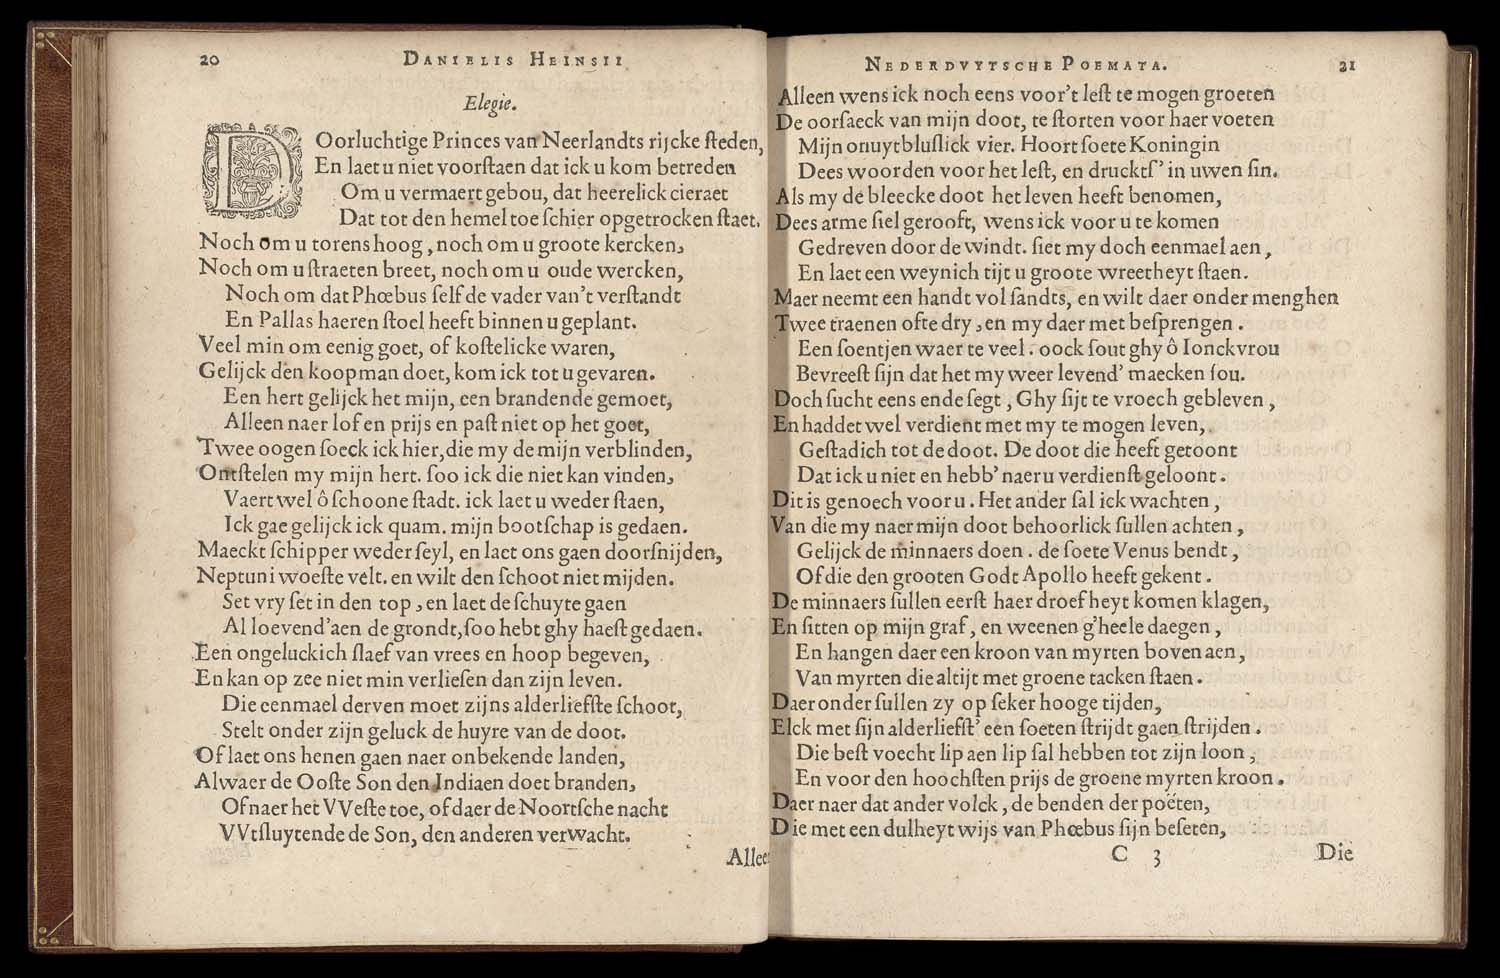 20
DANIELIS HEINSII
Elegie.
DOorluchtige Princes van Neerlandts rijcke ſteden,
En laet u niet voorſtaen dat ick u kom betreden
Om u vermaert gebou, dat heerelick cieraet
Dat tot den hemel toe ſchier opgetrocken ſtaet.
Noch om u torens hoog, noch om u groote kercken,
Noch om u ſtraeten breet, noch om u oude wercken,
Noch om dat Phœbus ſelf de vader van't verſtandt
En Pallas haeren ſtoel heeft binnen u geplant.
Veel min om eenig goet, of koſtelicke waren,
Gelijck den koopman doet, kom ick tot u gevaren.
Een hert gelijck het mijn, een brandende gemoet,
Alleen naer lof en prijs en paſt niet op het goet,
Twee oogen ſoeck ick hier, die my de mijn verblinden,
Ontſtelen my mijn hert. ſoo ick die niet kan vinden,
Vaert wel ô ſchoone ſtadt. ick laet u weder ſtaen,
Ick gae gelijck ick quam. mijn bootſchap is gedaen.
Maeckt ſchipper weder ſeyl, en laet ons gaen doorſnijden,
Neptuni woeſte velt. en wilt den ſchoot niet mijden.
Set vry ſet in den top, en laet de ſchuyte gaen
Al loevend'aen de grondt, ſoo hebt ghy haeſt gedaen.
Een ongeluckich ſlaef van vrees en hoop begeven,
En kan op zee niet min verlieſen dan zijn leven.
Die eenmael derven moet zijns alderliefſte ſchoot,
Stelt onder zijn geluck de huyre van de doot.
Of laet ons henen gaen naer onbekende landen,
Alwaer de Ooſte Son den Indiaen doet branden,
Of naer het VVeſte toe, of daer de Noortſche nacht
VVtſluytende de Son, den anderen verwacht.
Alleen
NEDERDVYTSCHE POEMATA.
21
Alleen wens ick noch eens voor't leſt te mogen groeten
De oorſaeck van mijn doot, te ſtorten voor haer voeten
Mijn onuytbluſlick vier. Hoort ſoete Koningin
Dees woorden voor het leſt, en druckt ſ' in uwen ſin.
Als my de bleecke doot het leven heeft benomen,
Dees arme ſiel gerooft, wens ick voor u te komen
Gedreven door de windt. ſiet my doch eenmael aen,
En laet een weynich tijt u groote wreetheyt ſtaen.
Maer neemt een handt vol ſandts, en wilt daer onder menghen
Twee traenen ofte dry, en my daer met beſprengen.
Een ſoentjen waer te veel. oock ſout ghy ô Ionckvrou
Bevreeſt ſijn dat het my weer levend' maecken ſou.
Doch ſucht eens ende ſegt, Ghy ſijt te vroech gebleven,
En haddet wel verdient met my te mogen leven,
Geſtadich tot de doot. De doot die heeft getoont
Dat ick u niet en hebb' naer u verdienſt geloont.
Dit is genoech voor u. Het ander ſal ick wachten,
Van die my naer mijn doot behoorlick ſullen achten,
Gelijck de minnaers doen. de ſoete Venus bendt,
Of die den grooten Godt Apollo heeft gekent.
De minnaers ſullen eerſt haer droefheyt komen klagen,
En ſitten op mijn graf, en weenen g'heele daegen,
En hangen daer een kroon van myrten boven aen,
Van myrten die altijt met groene tacken ſtaen.
Daer onder ſullen zy op ſeker hooge tijden,
Elck met ſijn alderliefſt' een ſoeten ſtrijdt gaen ſtrijden.
Die beſt voecht lip aen lip ſal hebben tot zijn loon,
En voor den hoochſten prijs de groene myrten kroon.
Daer naer dat ander volck, de benden der poëten,
Die met een dulheyt wijs van Phœbus ſijn beſeten,
C 3
Die